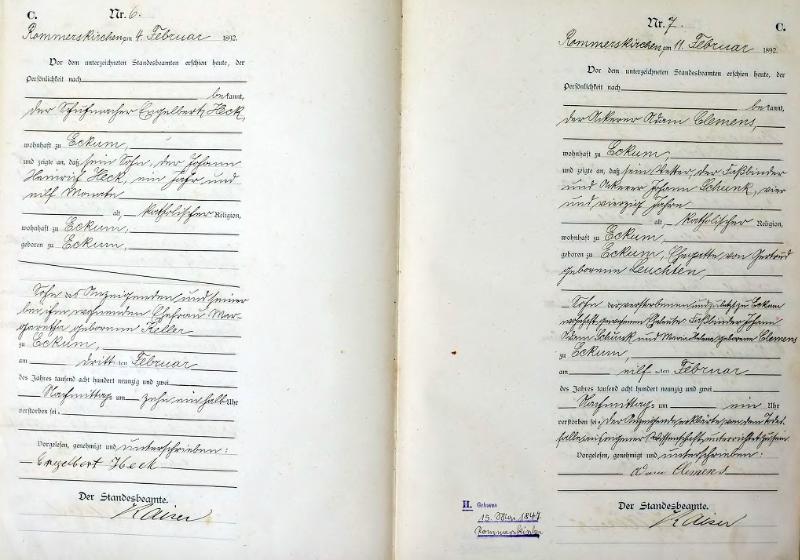 C.
Nr. 6.
Rommerskirchen am 4. Februar 1892.
Vor dem unterzeichneten Standesbeamten erschien heute, der
Persönlichkeit nach
bekannt,
der Schuhmacher Engelbert Heck,
wohnhaft zu Eckum,
und zeigte an, daß sein Sohn, der Johann
Heinrich Heck, ein Jahr und
eilf Monate
alt, katholischer Religion,
wohnhaft zu Eckum,
geboren zu Eckum,
Sohn des Anzeigenden und seiner
bei ihm wohnenden Ehefrau Mar-
garetha geborenen Keller
zu Eckum,
am dritten Februar
des Jahres tausend acht hundert neunzig und zwei
Nachmittags um zehn einhalb Uhr
verstorben sei.
Vorgelesen, genehmigt und unterschrieben:
Engelbert Heck
Der Standesbeamte.
Kaiser
Nr. 7.
C.
Rommerskirchen am 11. Februar 1892.
Vor dem unterzeichneten Standesbeamten erschien heute, der
Persönlichkeit nach
bekannt,
der Ackerer Adam Clemens,
wohnhaft zu Eckum,
und zeigte an, daß sein Vetter, der Faßbinder
und Ackerer Johann Schunk, vier
und vierzig Jahre
alt, katholischer Religion,
wohnhaft zu Eckum,
geboren zu Eckum, Ehegatte von Gertrud
geborenen Leuchten,
Sohn der verstorbenen und zuletzt zu Eckum
wohnhaft gewesenen Eheleute Faßbinder Johann
Adam Schunk und Maria geborene Clemens
zu Eckum,
am eilften Februar
des Jahres tausend acht hundert neunzig und zwei
Nachmittags um ein Uhr
verstorben sei. Der Anzeigende erklärte, von dem Todes-
falle aus eigener Wissenschaft unterrichtet zu sein.
Vorgelesen, genehmigt und unterschrieben:
Adam Clemens
Der Standesbeamte.
Kaiser
H. Geboren
15. 1847
Rommerskirchen